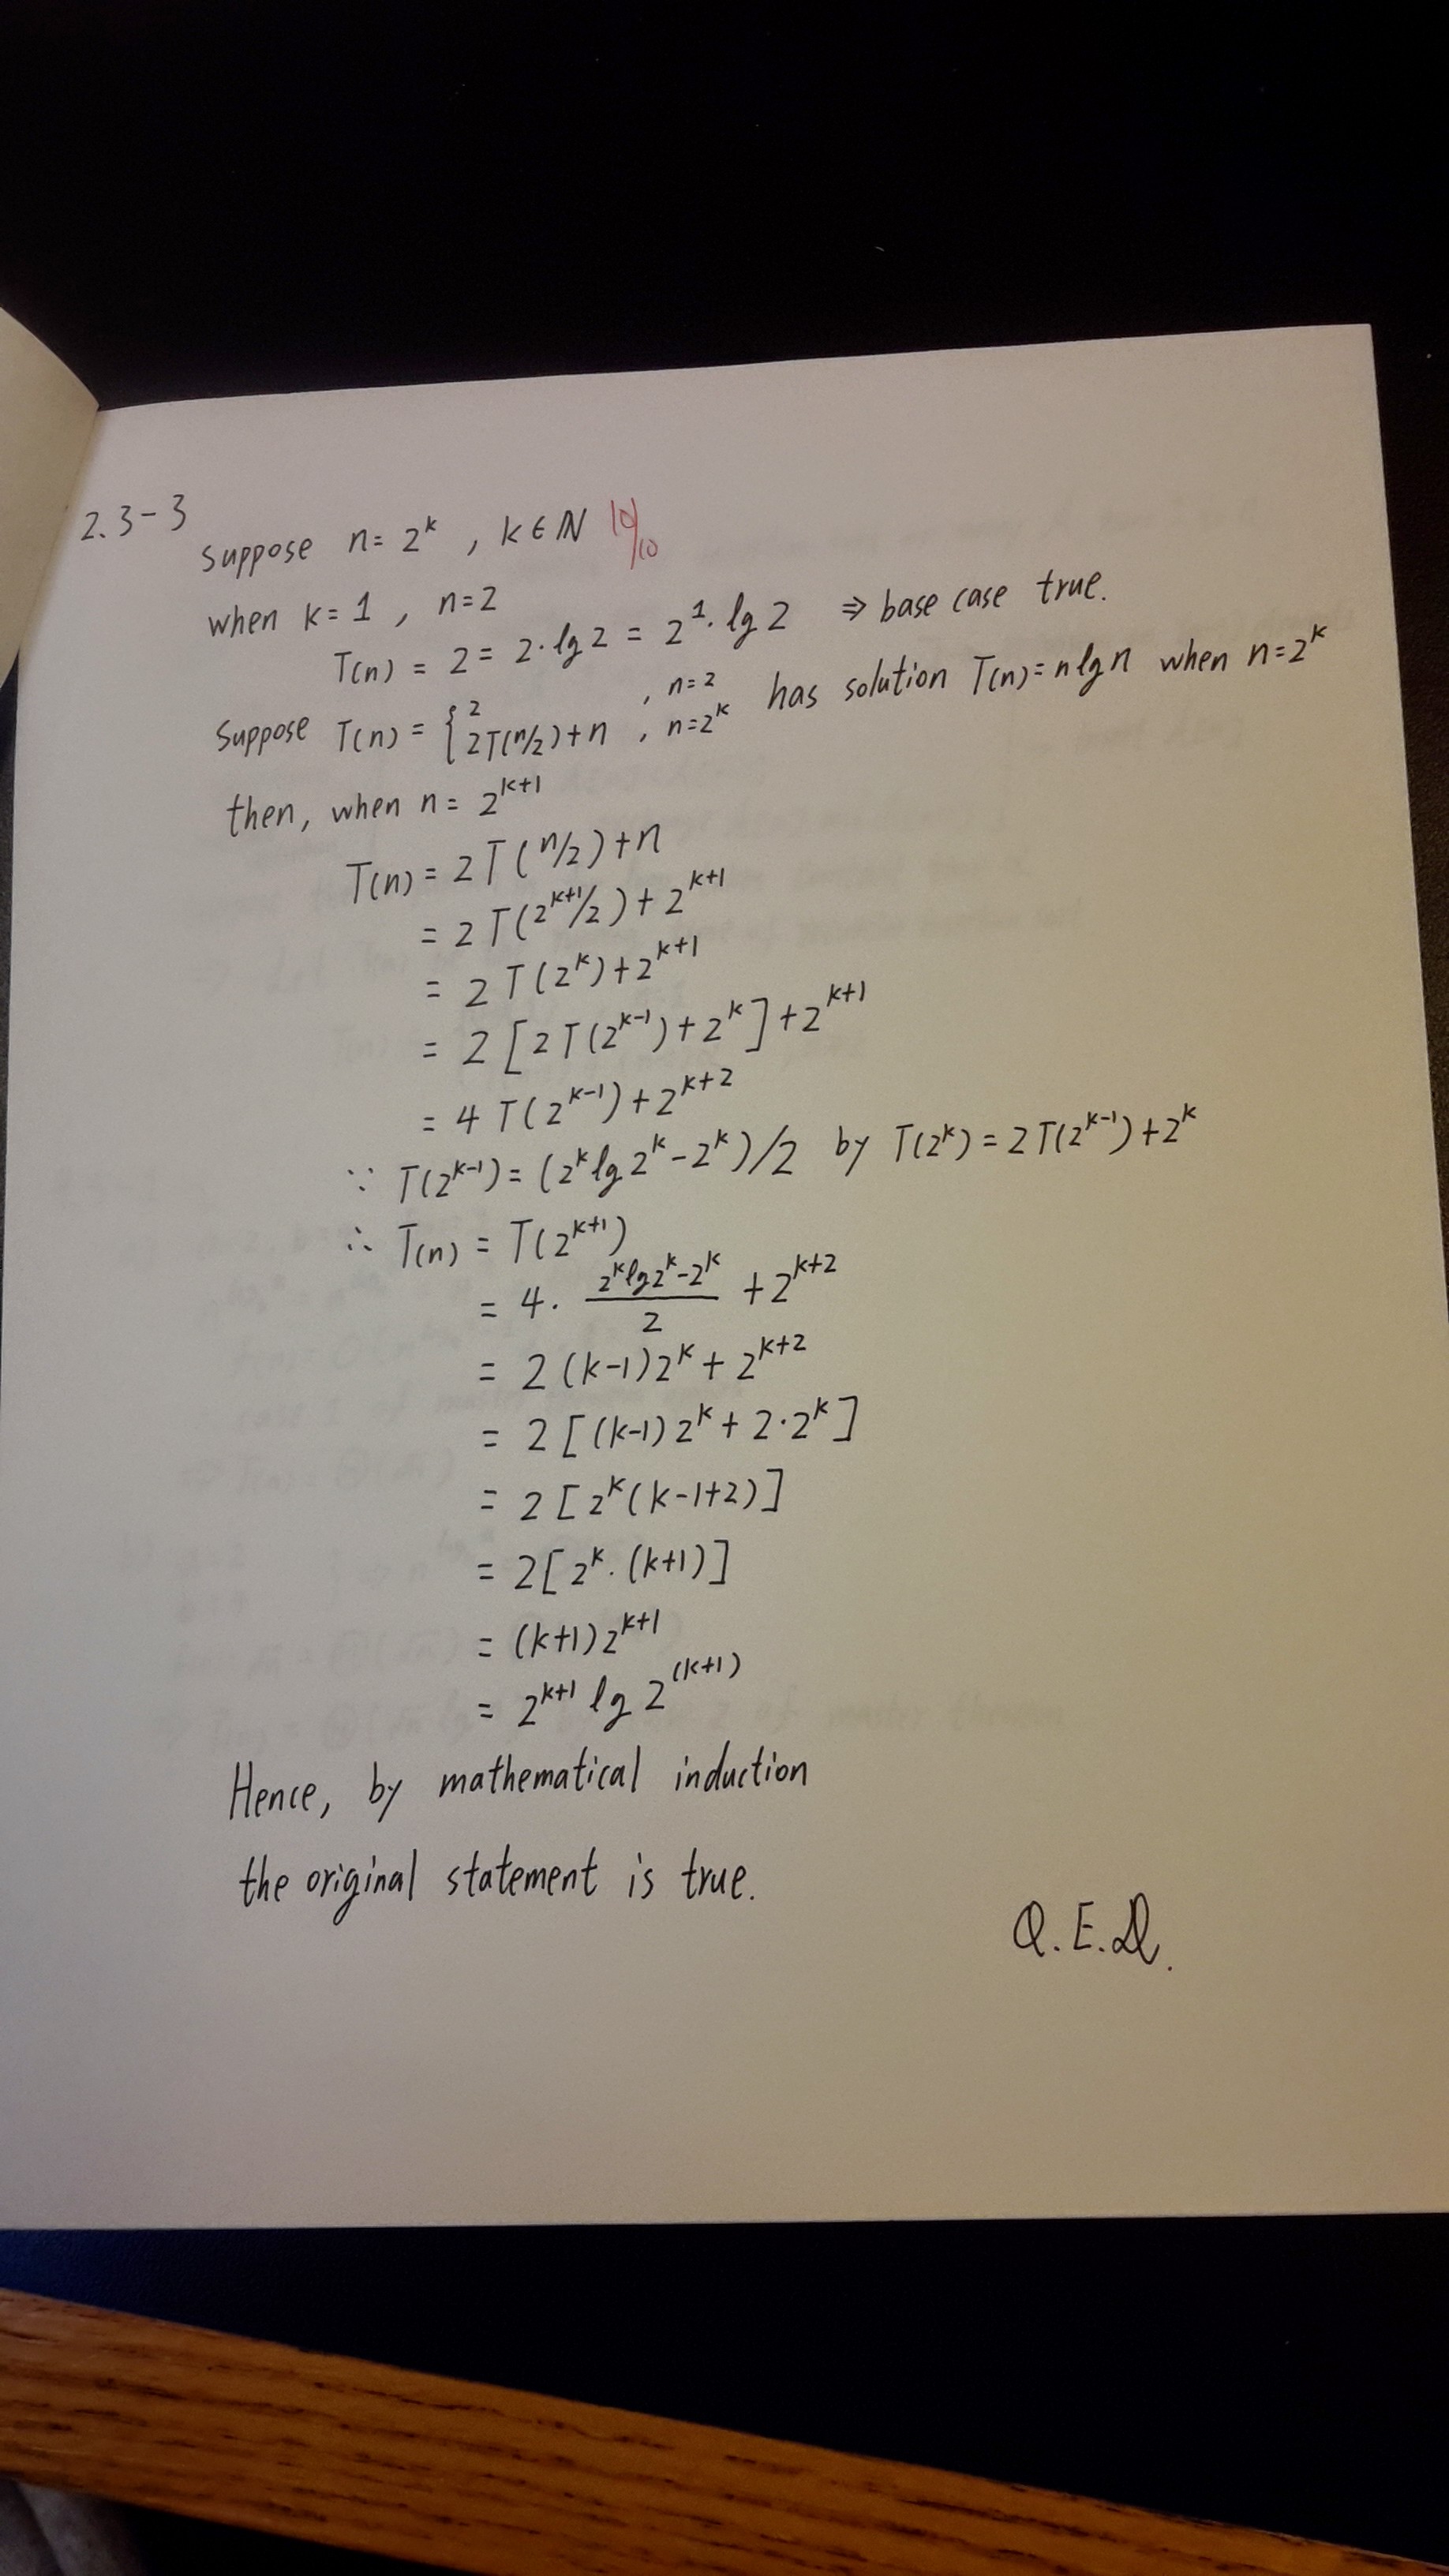 2.3-3
Suppose n = 2^k , k ∈ ℕ 10/10
when k = 1 , n = 2
T(n) = 2 = 2·lg 2 = 2^1·lg 2 ⇒ base case true.
Suppose T(n) = { 2 , n = 2
2T(n/2)+n , n = 2^k has solution T(n) = n lg n when n = 2^k
then, when n = 2^{k+1}
T(n) = 2T(n/2)+n
= 2T(2^{k+1}/2)+2^{k+1}
= 2T(2^k)+2^{k+1}
= 2[2T(2^{k-1})+2^k]+2^{k+1}
= 4T(2^{k-1})+2^{k+2}
∵ T(2^{k-1}) = (2^k lg 2^k - 2^k)/2 by T(2^k) = 2T(2^{k-1})+2^k
∴ T(n) = T(2^{k+1})
= 4· (2^k lg 2^k - 2^k)/2 + 2^{k+2}
= 2(k-1)2^k + 2^{k+2}
= 2[(k-1)2^k + 2·2^k]
= 2[2^k(k-1+2)]
= 2[2^k·(k+1)]
= (k+1)2^{k+1}
= 2^{k+1} lg 2^{(k+1)}
Hence, by mathematical induction
the original statement is true.
Q.E.D.